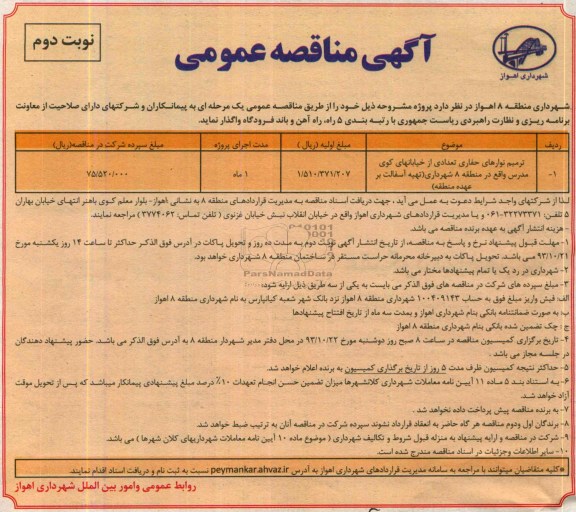 نوبت دوم
آگهی مناقصه عمومی
شهرداری اهواز
شهرداری منطقه ۸ اهواز در نظر دارد پروژه مشروحه ذیل خود را از طریق مناقصه عمومی یک مرحله ای به پیمانکاران و شرکتهای دارای صلاحیت از معاونت
برنامه ریزی و نظارت راهبردی ریاست جمهوری با رتبه بندی ۵ راه، راه آهن و باند فرودگاه واگذار نماید.
ردیف موضوع مبلغ اولیه (ریال) مدت اجرای پروژه مبلغ سپرده شرکت در مناقصه(ریال)
۱- ترمیم نوارهای حفاری تعدادی از خیابانهای کوی مدرس واقع در منطقه ۸ شهرداری(تهیه آسفالت بر عهده منطقه) ۱/۵۱۰/۳۷۱/۲۰۷ ۱ ماه ۷۵/۵۲۰/۰۰۰
لذا از شرکتهای واجد شرایط دعوت به عمل می آید ، جهت دریافت اسناد مناقصه به مدیریت قراردادهای منطقه ۸ به نشانی اهواز- بلوار معلم کوی باهنر انتهای خیابان بهاران
۵ تلفن: ۳۲۲۷۳۳۷۱-۰۶۱ و یا مدیریت قراردادهای شهرداری اهواز واقع در خیابان انقلاب نبش خیابان غزنوی ( تلفن تماس: ۳۷۷۴۰۶۲ ) مراجعه نمایند.
- هزینه انتشار آگهی به عهده برنده مناقصه می باشد.
۱- مهلت قبول پیشنهاد نرخ و پاسخ به مناقصه، از تاریخ انتشار آگهی نوبت دوم به مدت ده روز و تحویل پاکات در آدرس فوق الذکر حداکثر تا ساعت ۱۴ روز یکشنبه مورخ
۹۳/۱۰/۲۱ می باشد. تحویل پاکات به دبیرخانه محرمانه حراست مستقر در ساختمان منطقه ۸ شهرداری خواهد بود.
۲- شهرداری در رد یک یا تمام پیشنهادها مختار می باشد
۳- مبلغ سپرده های شرکت در مناقصه های فوق الذکر می بایست به یکی از سه طریق ذیل ارایه شود:
الف: فیش واریز مبلغ فوق به حساب ۱۰۰۴۰۹۱۴۳ شهرداری منطقه ۸ اهواز نزد بانک شهر شعبه کیانپارس به نام شهرداری منطقه ۸ اهواز
ب: به صورت ضمانتنامه بانکی بنام شهرداری اهواز و بمدت سه ماه از تاریخ افتتاح پیشنهادها
ج : چک تضمین شده بانکی بنام شهرداری منطقه ۸ اهواز
۴- تاریخ برگزاری کمیسیون مناقصه در ساعت ۸ صبح روز دوشنبه مورخ ۹۳/۱۰/۲۲ در محل دفتر مدیر شهردار منطقه ۸ به آدرس فوق الذکر می باشد. حضور پیشنهاد دهندگان
در جلسه مجاز می باشد .
۵- حداکثر نتیجه کمیسیون ظرف مدت ۵ روز از تاریخ برگذاری کمیسیون به برنده اعلام خواهد شد.
۶- به استناد بند ۵ ماده ۱۱ آیین نامه معاملات شهرداری کلانشهرها میزان تضمین حسن انجام تعهدات ۱۰٪ درصد مبلغ پیشنهادی پیمانکار میباشد که پس از تحویل موقت
آزاد خواهد شد.
۷- به برنده مناقصه پیش پرداخت داده نخواهد شد .
۸- برندگان اول ودوم مناقصه هر گاه حاضر به انعقاد قرارداد نشوند سپرده شرکت در مناقصه آنان به ترتیب ضبط خواهد شد.
۹- شرکت در مناقصه و ارایه پیشنهاد به منزله قبول شروط و تکالیف شهرداری ( موضوع ماده ۱۰ آیین نامه معاملات شهرداریهای کلان شهرها ) می باشد.
۱۰- سایر اطلاعات وجزئیات در اسناد مناقصه مندرج شده است.
*کلیه متقاضیان میتوانند با مراجعه به سامانه مدیریت قراردادهای شهرداری اهواز به آدرس peymankar.ahvaz.ir نسبت به ثبت نام و دریافت اسناد اقدام نمایند.
روابط عمومی وامور بین الملل شهرداری اهواز
ParsNamadData